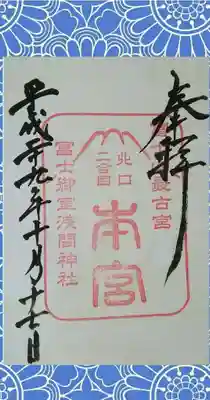 奉拝
富士最古宮
北口
二合目
本宮
冨士御室浅間神社
平成廿九年十月十七日